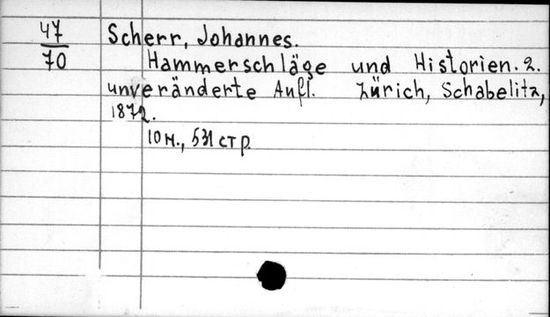 47
70
Scherr, Johannes.
Hammerschläge und Historien. 2.
unveränderte Aufl. Zürich, Schabelitz,
1872.
531 стр.